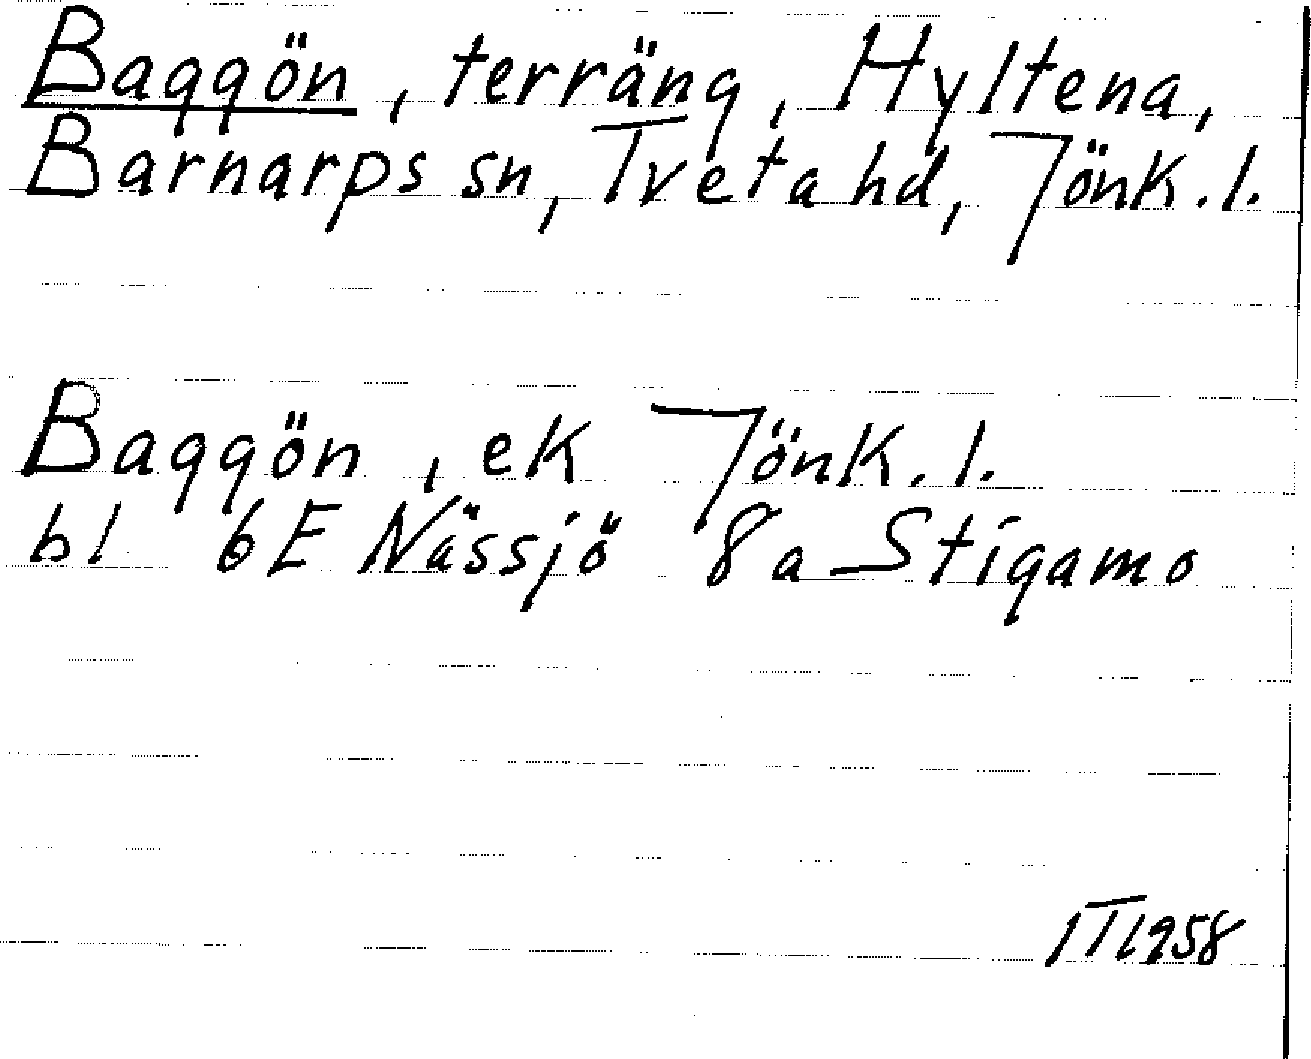 Baggön, terräng, Hyltena,
Barnarps sn, Tveta hd, Jönk. l.
Baggön, ek Jönk. l.
bl 6E Nässjö 8a Stigamo